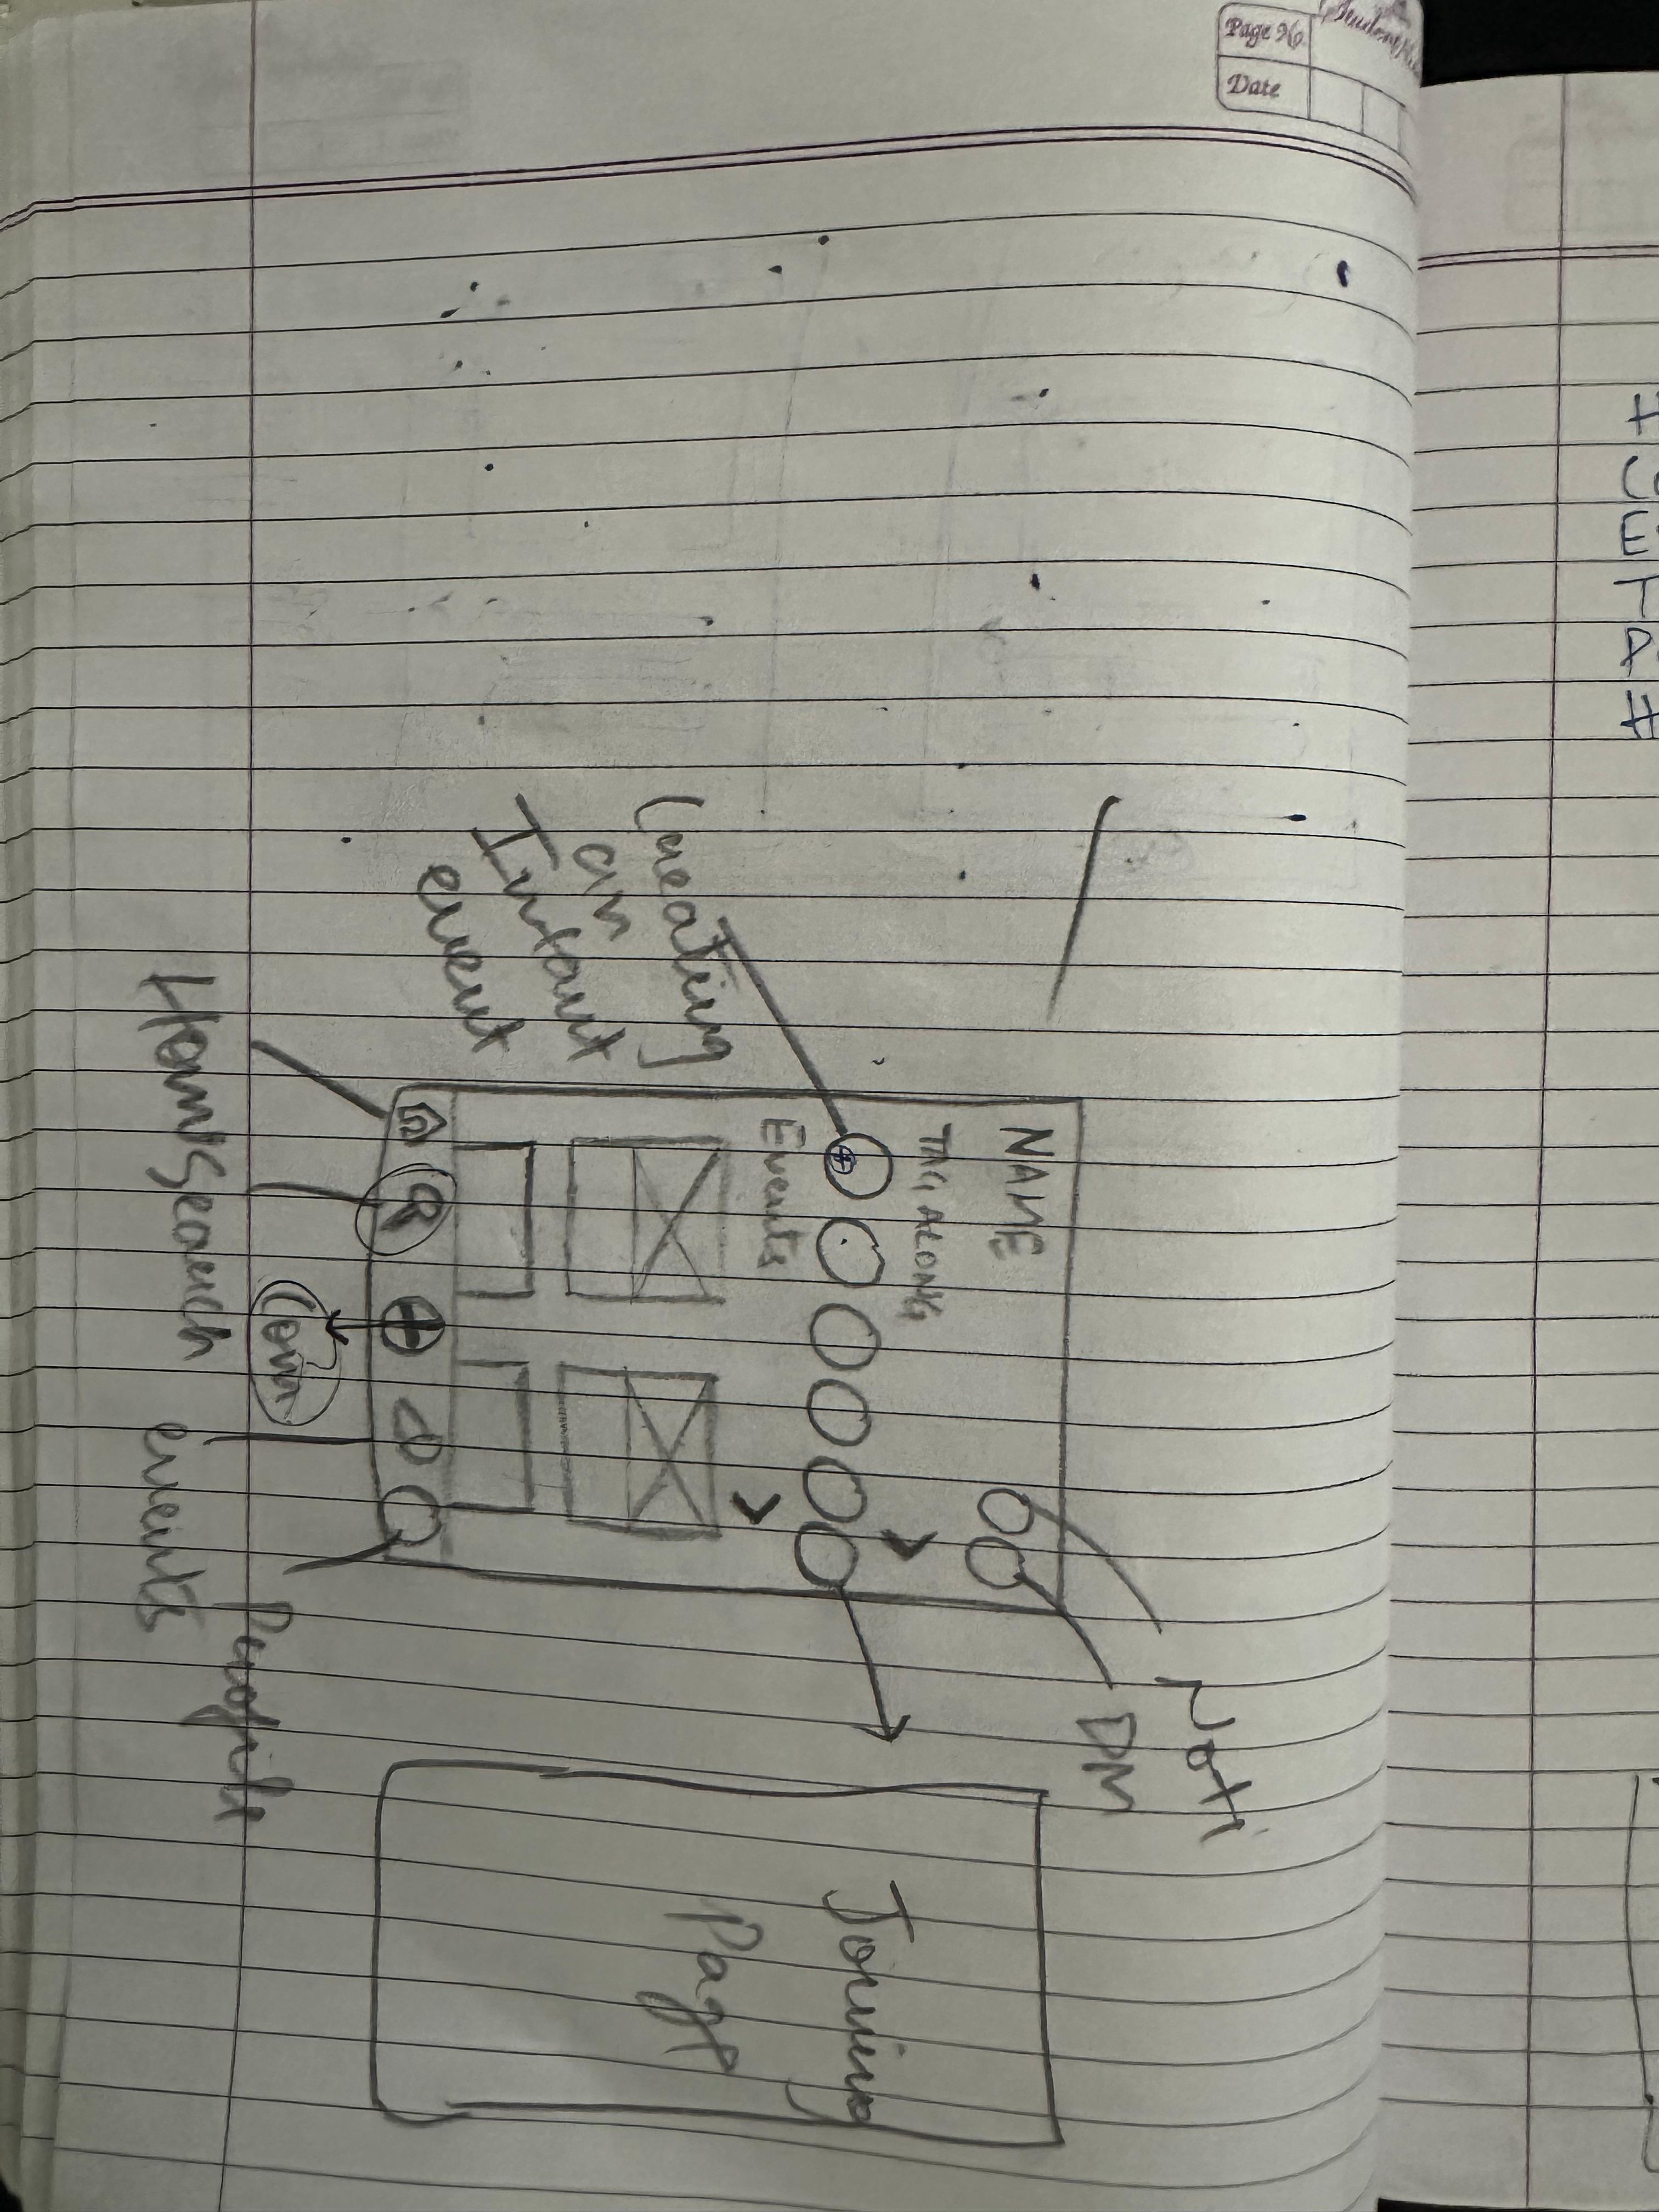 Page No.
Date
NAME
TAG ALONG
Events
Creating
an
Instant
event
Home
Search
Com
events
Profile
Noti
DM
Joining
Page